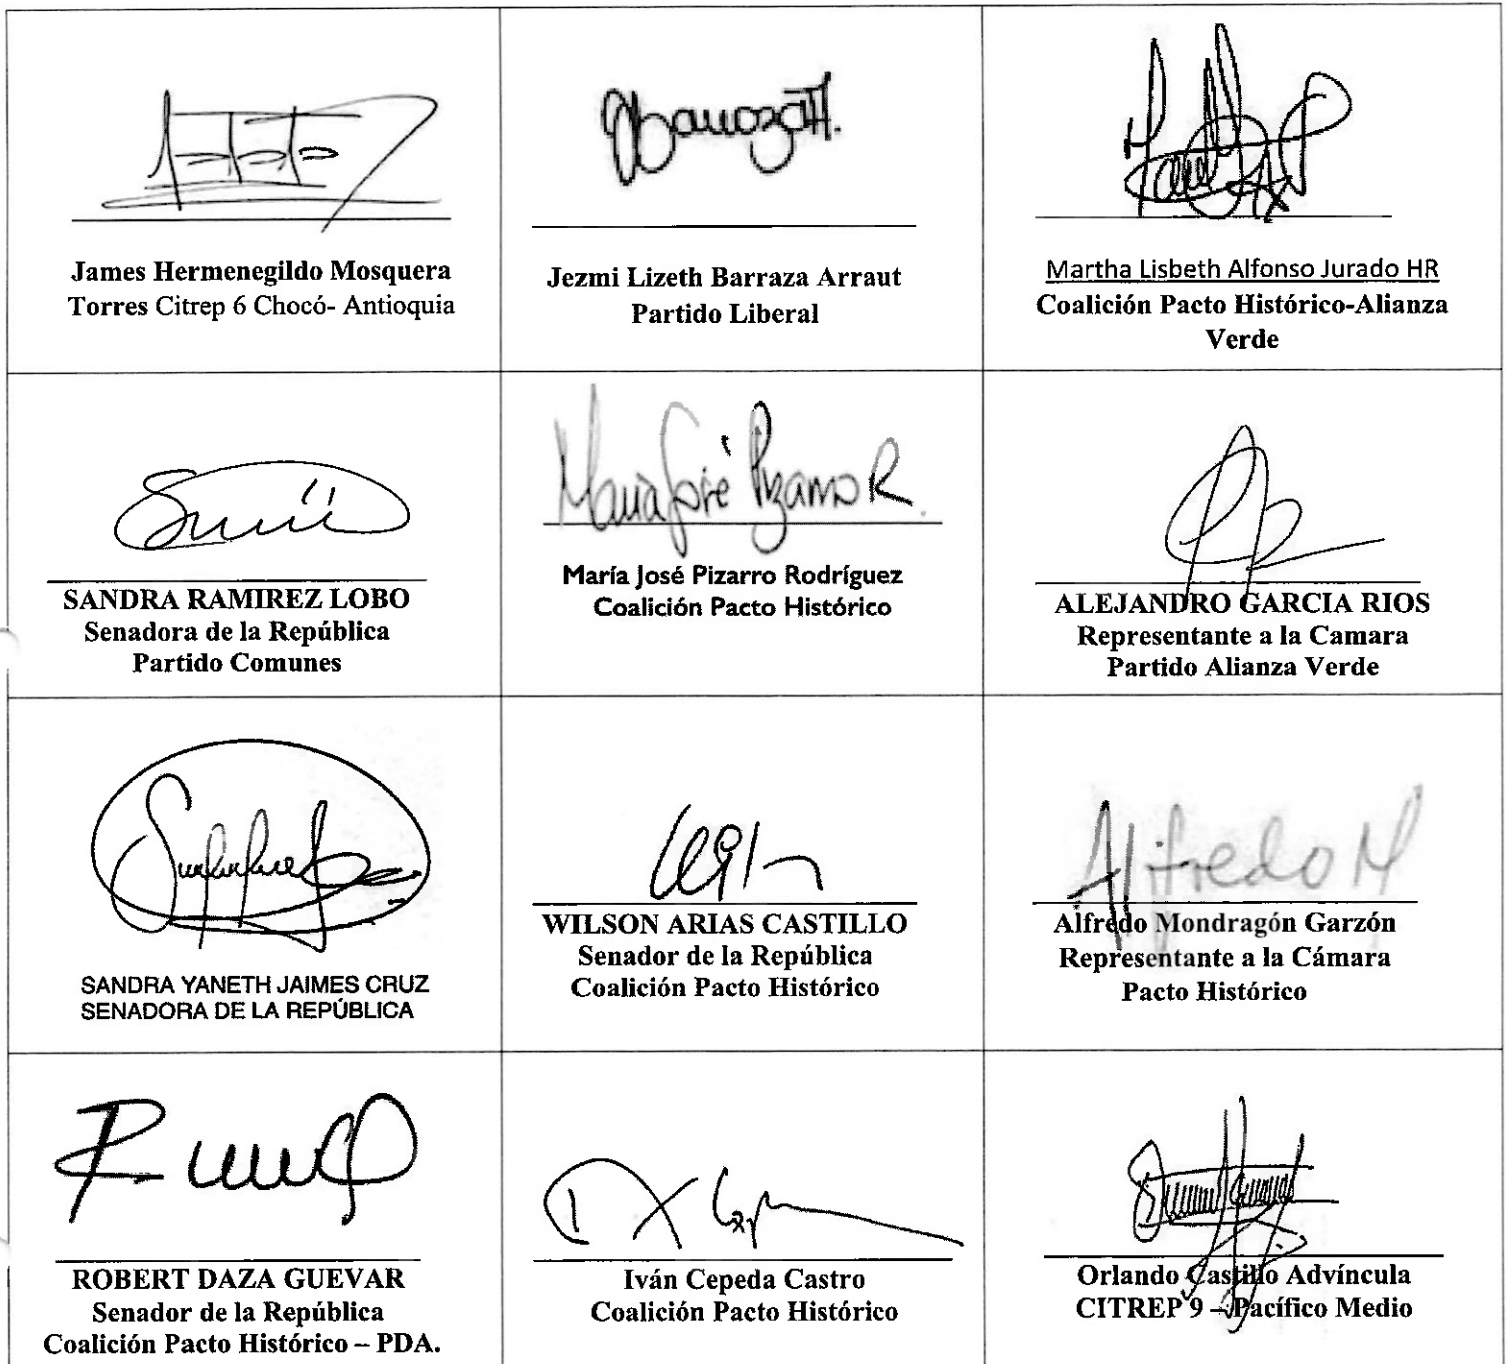 James Hermenegildo Mosquera
Torres Citrep 6 Chocó- Antioquia
Jezmi Lizeth Barraza Arraut
Partido Liberal
Martha Lisbeth Alfonso Jurado HR
Coalición Pacto Histórico-Alianza
Verde
SANDRA RAMIREZ LOBO
Senadora de la República
Partido Comunes
María José Pizarro R.
María José Pizarro Rodríguez
Coalición Pacto Histórico
ALEJANDRO GARCIA RIOS
Representante a la Camara
Partido Alianza Verde
SANDRA YANETH JAIMES CRUZ
SENADORA DE LA REPÚBLICA
WILSON ARIAS CASTILLO
Senador de la República
Coalición Pacto Histórico
Alfredo M
Alfredo Mondragón Garzón
Representante a la Cámara
Pacto Histórico
ROBERT DAZA GUEVAR
Senador de la República
Coalición Pacto Histórico – PDA.
Iván Cepeda Castro
Coalición Pacto Histórico
Orlando Castillo Advíncula
CITREP 9 – Pacífico Medio